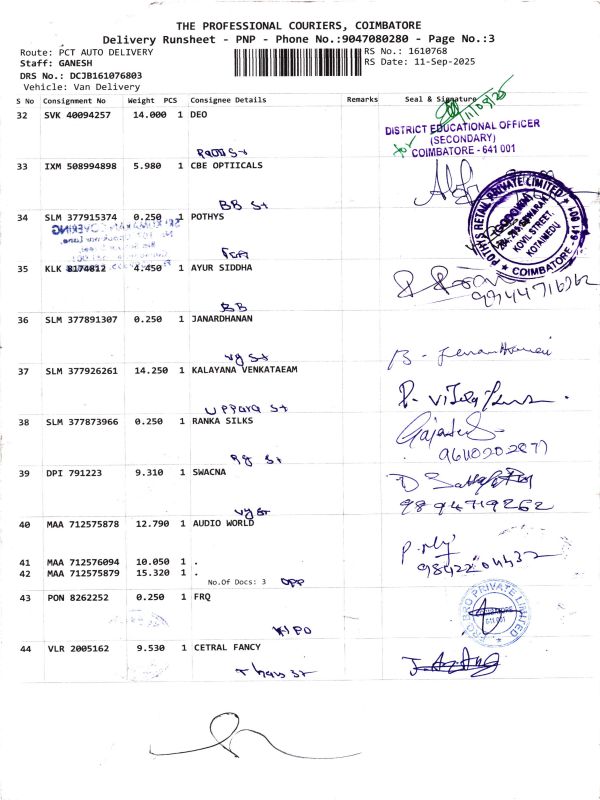 THE PROFESSIONAL COURIERS, COIMBATORE
Delivery Runsheet - PNP - Phone No.:9047080280 - Page No.:3
Route: PCT AUTO DELIVERY RS No.: 1610768
Staff: GANESH RS Date: 11-Sep-2025
DRS No.: DCJB161076803
Vehicle: Van Delivery
S No Consignment No Weight PCS Consignee Details Remarks Seal & Signature
11/09/25
32 SVK 40094257 14.000 1 DEO
DISTRICT EDUCATIONAL OFFICER
(SECONDARY)
for COIMBATORE - 641 001
33 IXM 508994898 5.980 1 CBE OPTIICALS
BB St
34 SLM 377915374 0.250 1 POTHYS
POTHYS RETAIL PRIVATE LIMITED
GODOWN
KOVIL STREET,
KOTAIMEDU
COIMBATORE - 641 001
35 KLK 8174812 4.450 1 AYUR SIDDHA
BB
36 SLM 377891307 0.250 1 JANARDHANAN
vg St
37 SLM 377926261 14.250 1 KALAYANA VENKATAEAM
Uppara St
38 SLM 377873966 0.250 1 RANKA SILKS
Rg St
39 DPI 791223 9.310 1 SWACNA
vg St
9894719262
40 MAA 712575878 12.790 1 AUDIO WORLD
41 MAA 712576094 10.050 1 .
42 MAA 712575879 15.320 1 .
No.Of Docs: 3 OPP
43 PON 8262252 0.250 1 FRQ
PRIVATE LIMITED
44 VLR 2005162 9.530 1 CETRAL FANCY